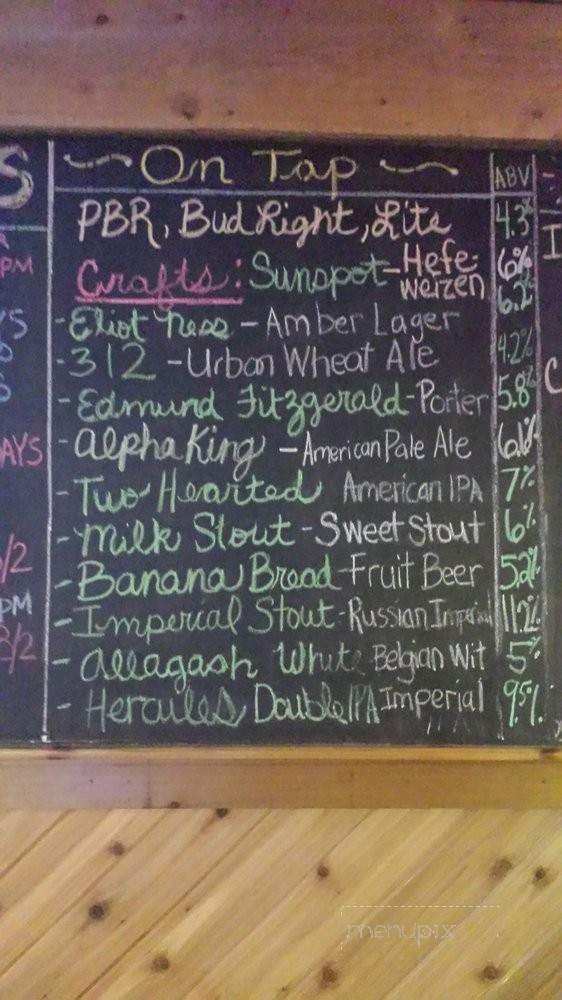 S
On Tap
ABV
PBR, Bud Light, Lite 4.3%
PM
Crafts: Sunspot - Hefe-weizen 6%
- Eliot Ness - Amber Lager 6.2%
- 312 - Urban Wheat Ale 4.2%
- Edmund Fitzgerald - Porter 5.8%
AYS
- Alpha King - American Pale Ale
- Two Hearted American IPA 7%
- Milk Stout - Sweet Stout 6%
- Banana Bread - Fruit Beer 5.2%
/2
PM
- Imperial Stout - Russian Imperial 11.2%
/2
- Allagash White Belgian Wit 5%
- Hercules Double IPA Imperial 9.5%
menupix